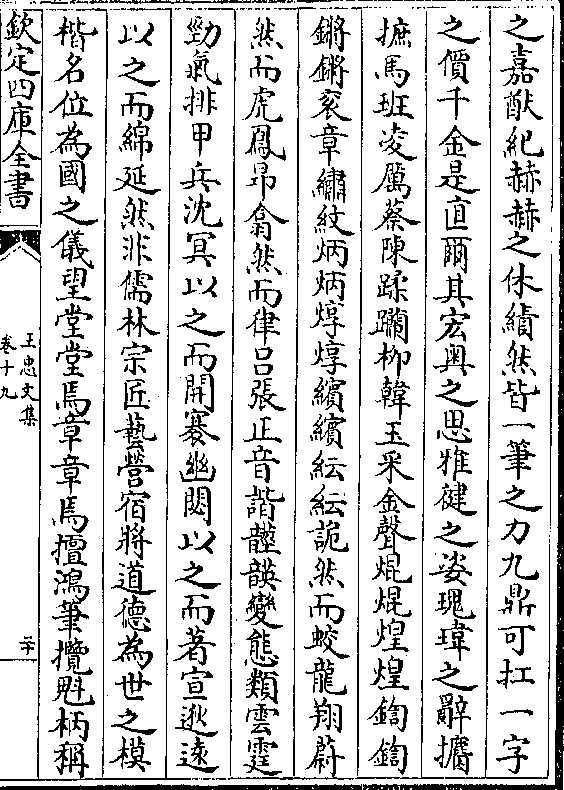 之嘉猷紀赫赫之休績然皆一筆之力九鼎可扛一字
之價千金是直爾其宏奥之思雅健之姿瑰瑋之辭攟
摭馬班凌厲蔡陳蹂躪柳韓玉采金聲焜焜煌煌鍧鍧
鏘鏘衮章繡紋炳炳焞焞繽繽紜紜詭然而蛟龍翔蔚
然而虎鳳昂翕然而律吕張正音諧韺變態類雲霆
勁氣排甲兵沈冥以之而開褰幽閟以之而著宣逖逺
以之而綿延然非儒林宗匠藝營宿將道德為世之模
楷名位為國之儀望堂堂焉章章焉擅鴻筆攬魁柄稱
欽定四庫全書
王忠文集
卷十九
二十